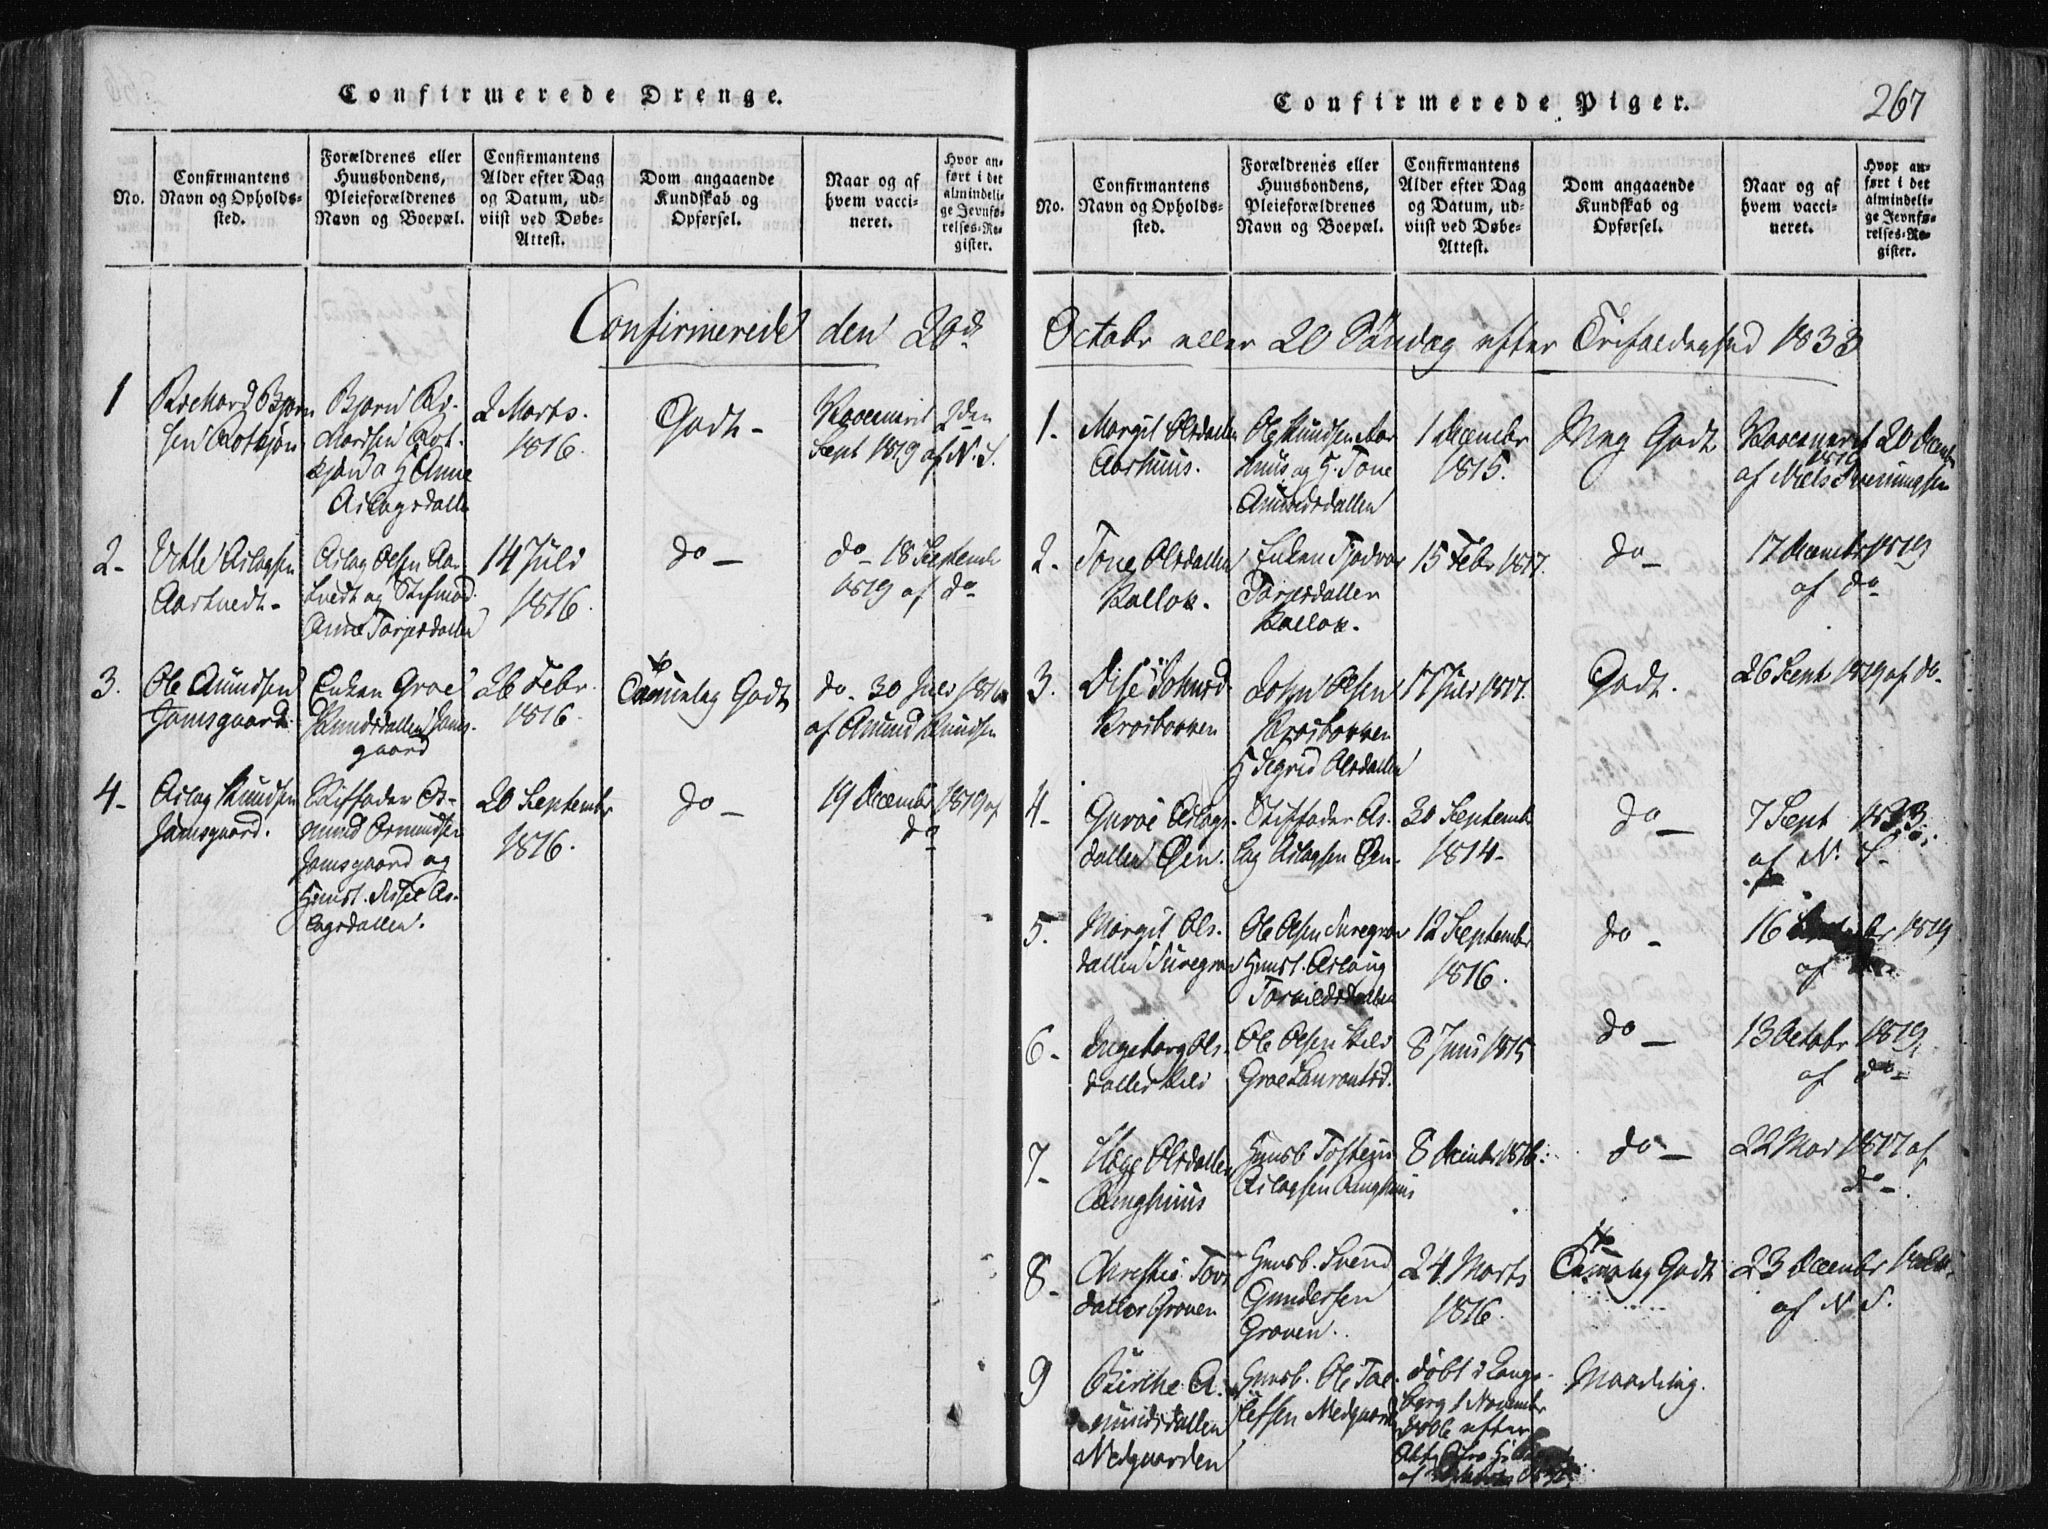 Confirmerede Drenge.
No.
Confirmantens
Navn og Opholds-
sted.
Forældrenes eller
Huusbondens,
Pleieforældrenes
Navn og Boepæl.
Confirmantens
Alder efter Dag
og Datum, ud-
viist ved Døbe-
Attest.
Dom angaaende
Kundskab og
Opførsel.
Naar og af
hvem vacci-
neret.
Hvor an-
ført i det
almindeli-
ge Jevnfø-
relses-Re-
gister.
Confirmerede den 20de
1
Richard Bjørn
sen Rotkjøn
Bjørn Ri-
kardsen Rot-
kjøn og H Anne
Aslagsdatter
2 Marts
1816.
Godt -
Vaccinert 2den
Sept 1819 af N. S.
2-
Vetle Aslagsen
Aastvedt-
Aslag Olsen Aa-
stvedt og Stifmod.
Anne Torjersdatter
14 Juli
1816.
do -
do - 18 Septembr
1819 af do
3.
Ole Amundsen
Jamsgaard
Enken Groe
Knudsdatter Jams-
gaard
26 Febr.
1816.
Godt
do - 30 Juli
af Amund Knudsen
4-
Aslag Knudsen
Jamsgaard.
Stiffader As-
mund Asmundsen
Jamsgaard og
Hunst. Assel As-
lagsdatter.
20 Septembr
1816.
do -
19 Decembr 1819 af
do
Confirmerede Piger.
267
No.
Confirmantens
Navn og Opholds-
sted.
Forældrenes eller
Huusbondens,
Pleieforældrenes
Navn og Boepæl.
Confirmantens
Alder efter Dag
og Datum, ud-
viist ved Døbe-
Attest.
Dom angaaende
Kundskab og
Opførsel.
Naar og af
hvem vacci-
neret.
Hvor an-
ført i det
almindeli-
ge Jevnfø-
relses-Re-
gister.
Octobr eller 20 Søndag efter Trefoldighed 1833
1-
Margit Olsdatter
Aarhuus.
Ole Knudsen Aar
huus og H. Tone
Amundsdatter
1 Decembr
1815.
Meg Godt
Vaccineret 20 Decembr
1819
af Niels Sveinungsen
2-
Tone Olsdatter
Kallok.
Enken Tjodvor
Torjersdatter
Kallok.
15 Febr 1817.
do -
17 Decembr 1819
af do
3.
Lise Johnsd.
Krosbakken
John Olsen
Krosbakken
H Sigrid Olsdatter
17 Juli 1817.
Godt.
26 Sept 1819 af do-
4-
Guroe Aslags-
datter Øen.
Stiffader As-
lag Aslagsen Øen-
20 Septembr
1814-
do -
7 Sept 1833.
af N. S-
5.
Margit Ols-
datter
Ole Olsen
Hunst. Aslaug
Torkildsdatter
12 Septembr
1816.
do -
16 1819
af
6-
Ingeborg Ols-
datter
Ole Olsen
Groe
8 Juni 1815
do -
13 Octobr 1819
af do-
7-
Olsdatter
Ringhuus
Huusb Tostein
Aslagsen Ringhuus
8 Decembr 1816.
do -
22 Mai 1817 af
do -
8-
Christie Tovs
datter Groven
Huusb. Svend
Gundersen
Groven.
24 Marts
1816.
Godt
23 Decembr
af N S.
9
Birthe A-
mundsdatter
Nedgaarden
Huusb. Ole Tol-
lefsen Nedgaarden
døbt i Longs-
berg 1 Novembr
efter
Maadelig.